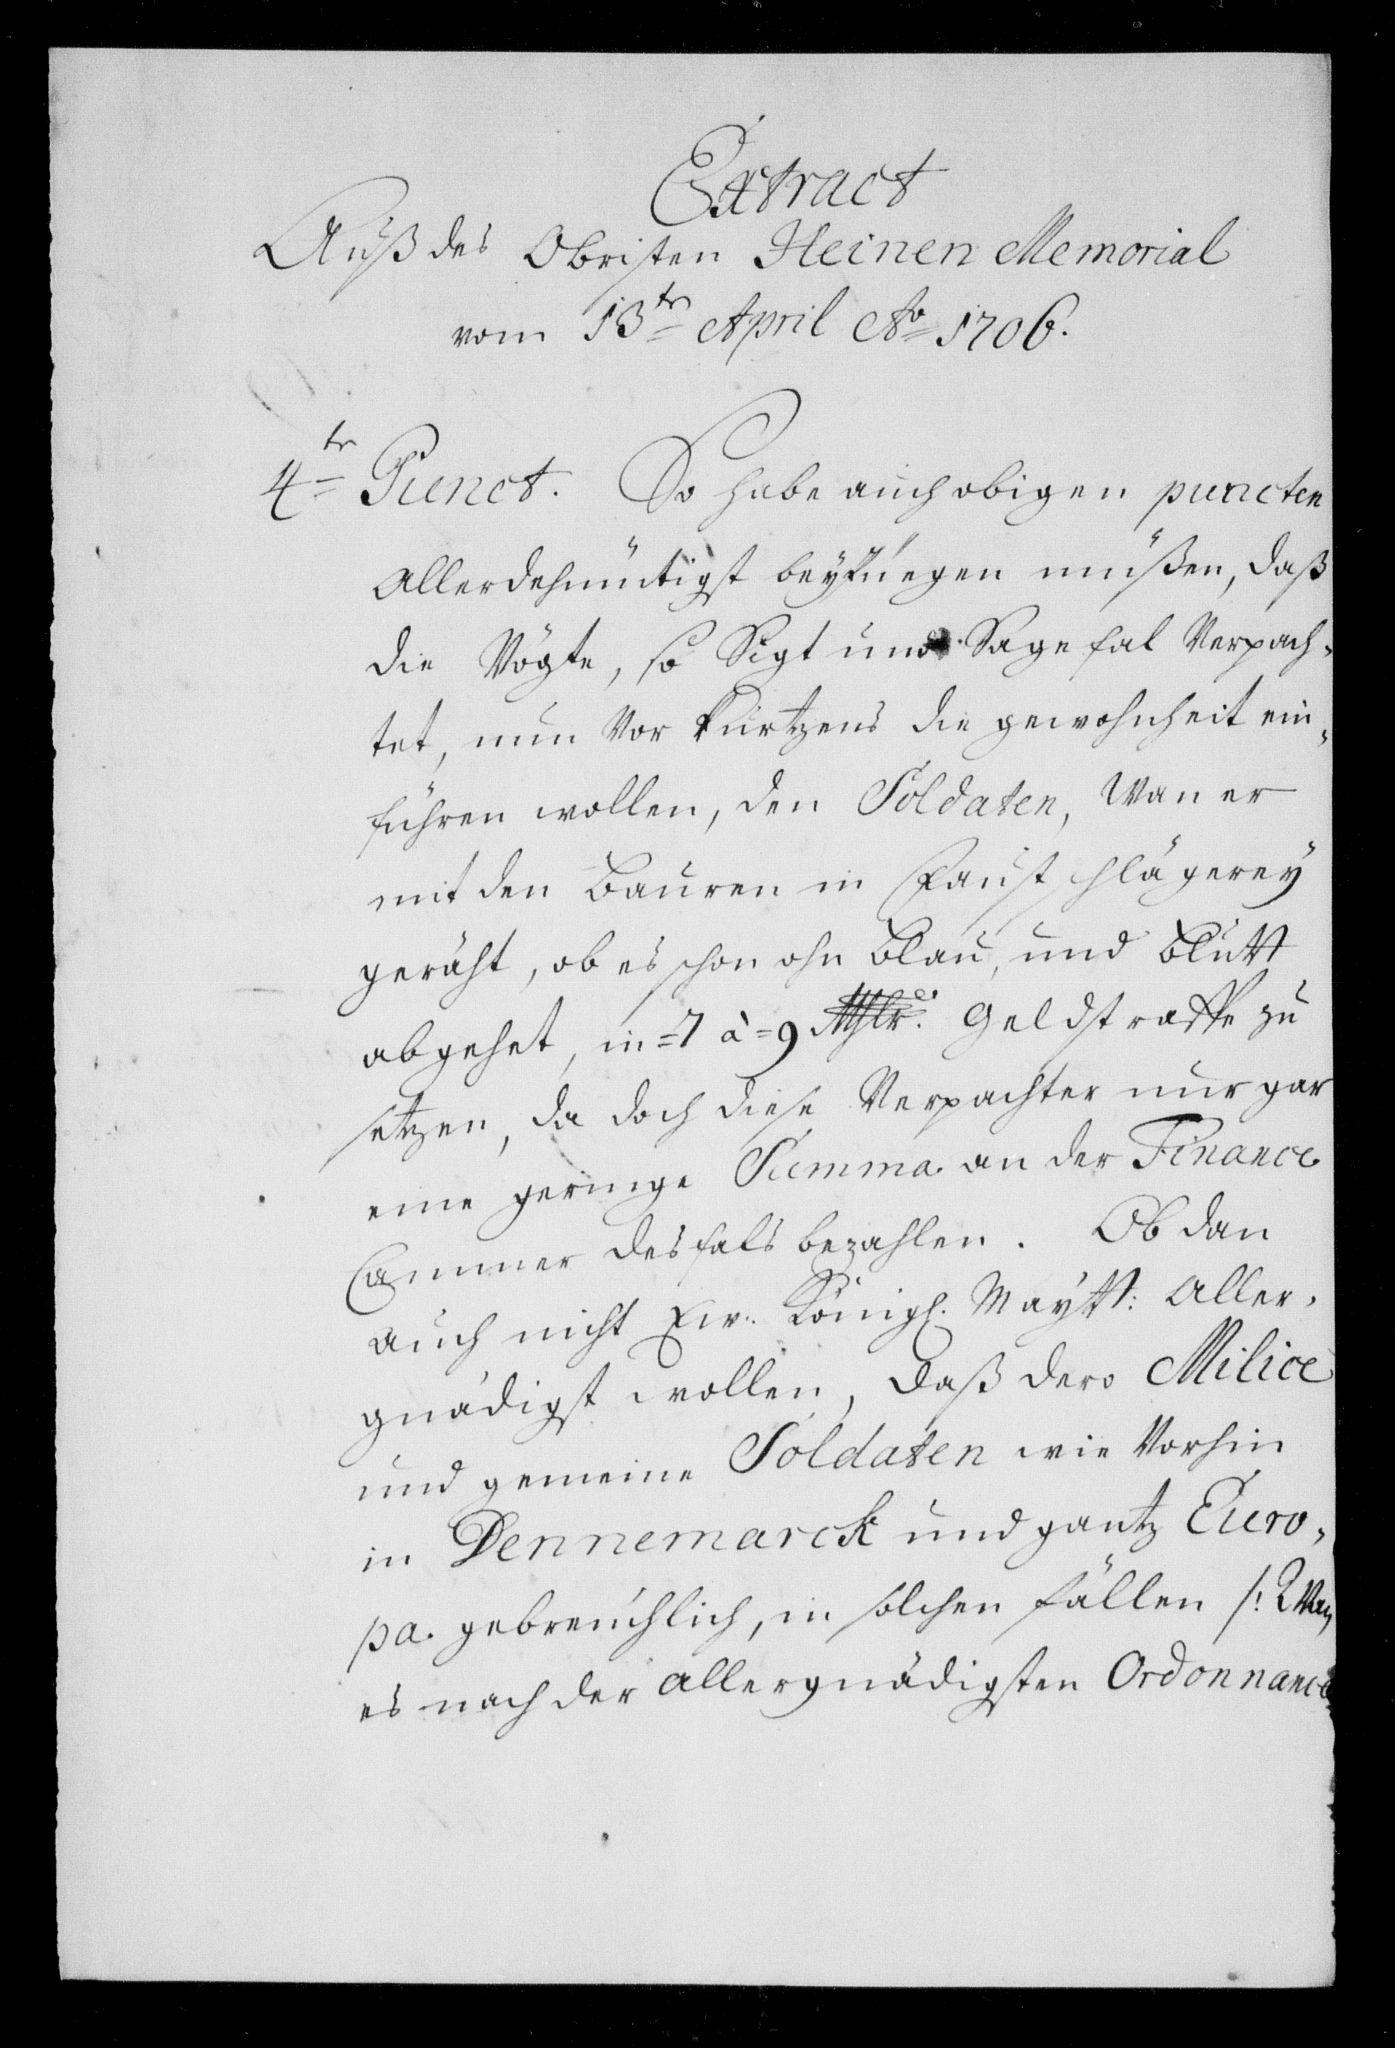 Extract
Auß des Obristen Heinen Memorial
vom 13te April Ao 1706.
4te Punct. So habe auch obigen puncten
Allerdehmütigst beyfüegen müßen, daß
die Vögte, so Sigt und Sagefal Verpach¬
tet, nun Vor kurtzens die gewohnheit ein¬
führen wollen, den Soldaten, Wan er
mit den Bauren in Faustschlägerey
geräht, ob es schon ohn Blau, und Blutt
abgehet, in =7 à =9 Rthlr. Geldstraffe zu
setzen, da doch diese Verpachter nur gar
eine geringe Summa an der Finance
Cammer desfals bezahlen. Ob dan
auch nicht Ew. Königl. Maytt: Aller¬
gnädigst wollen, daß dero Milice
und gemeine Soldaten wie Vorhin
in Dennemarck und gantz Euro¬
pa. gebreuchlich, in solchen fällen /: Wan
es nach der Allergnädigsten Ordonnance